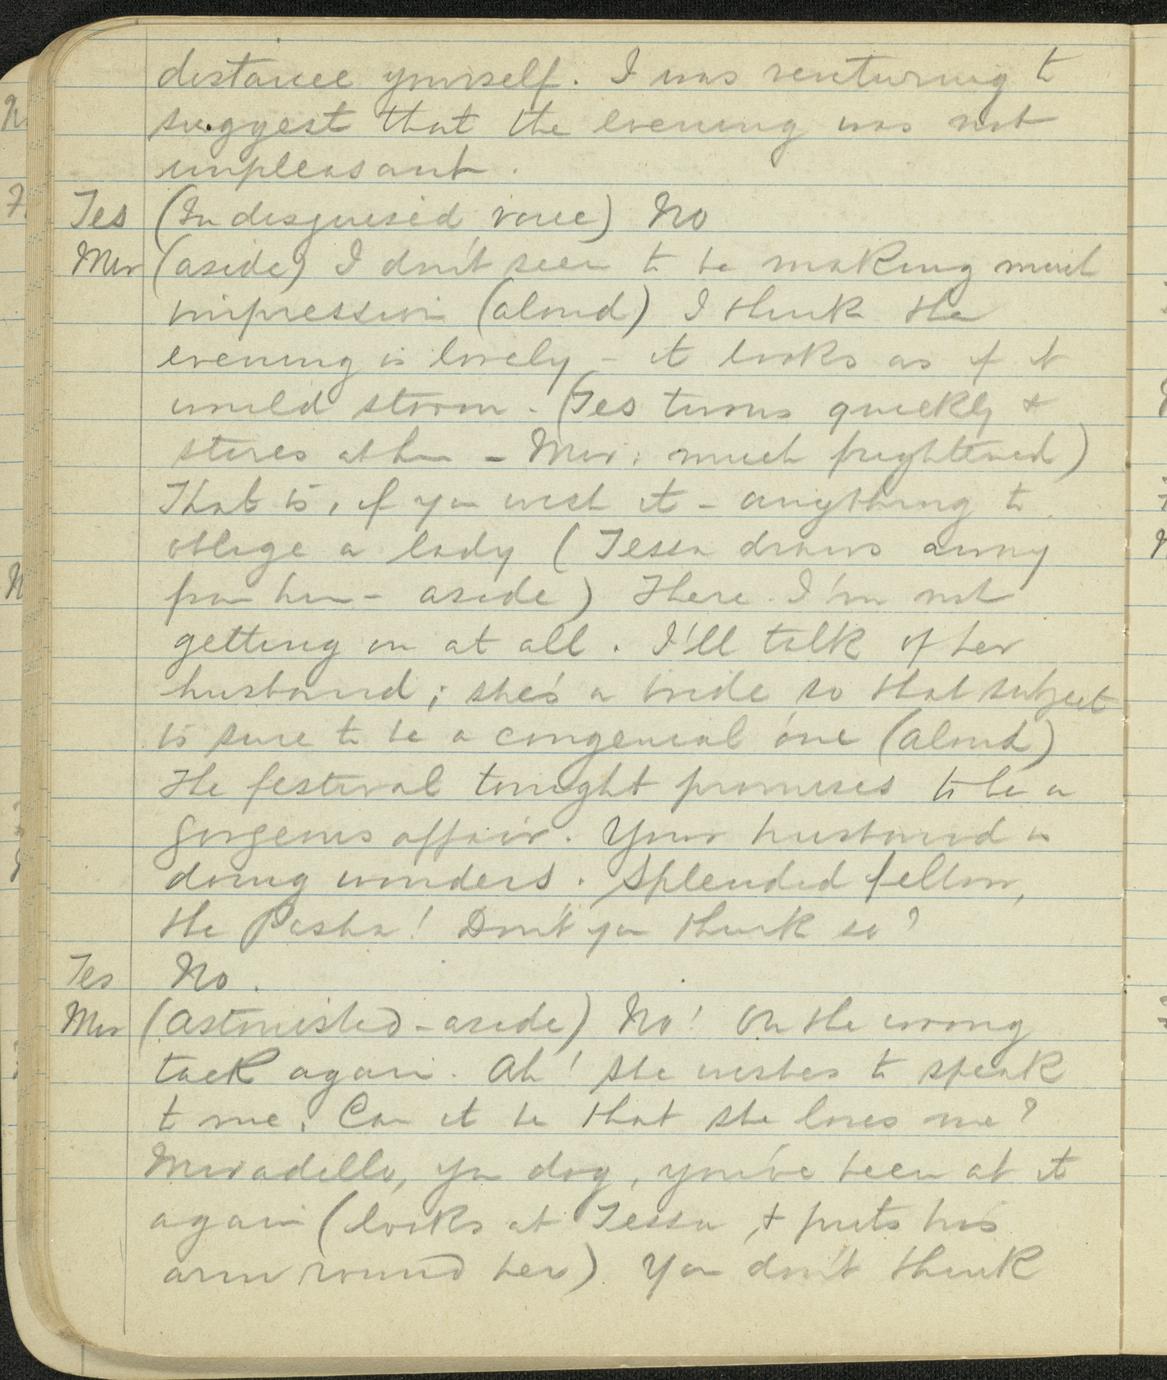 distance yourself. I was venturing to
suggest that the evening was not
unpleasant.
Tes (In disguised voice) No
Mir (aside) I don't seem to be making much
impression (aloud) I think the
evening is lovely - it looks as if it
would storm. (Tes turns quickly &
stares at him - Mir: much frightened)
That is, if you wish it - anything to
oblige a lady (Tessa draws away
from him - aside) There. I'm not
getting on at all. I'll talk of her
husband; she's a bride so that subject
is sure to be a congenial one (aloud)
The festival tonight promises to be a
gorgeous affair. Your husband is
doing wonders. Splendid fellow,
the Pasha! Don't you think so?
Tes No.
Mir (astonished - aside) No! On the wrong
tack again. Ah! She wishes to speak
to me. Can it be that she loves me?
Miradello, you dog, you've been at it
again (looks at Tessa, & puts his
arm round her) You don't think